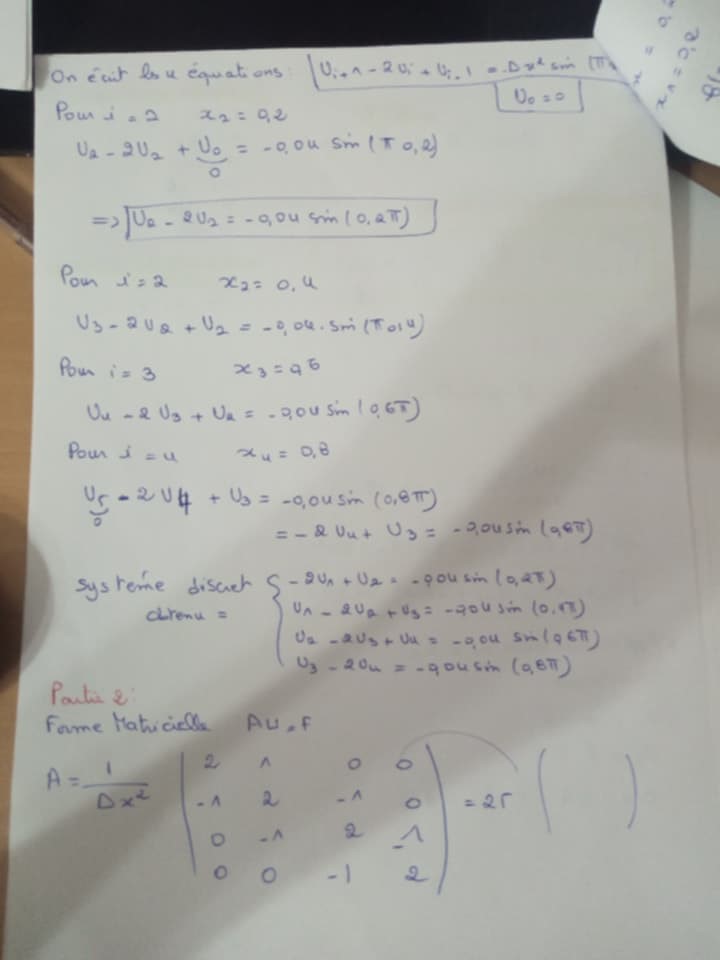 On écrit les 4 équations : Ui+1 - 2Ui + Ui-1 = -Δx² sin (π
U0 = 0
Pour i = 1 x1 = 0,2
U2 - 2U1 + U0 = -0,04 sin (π 0,2)
0
=> U2 - 2U1 = -0,04 sin (0,2π)
Pour i = 2 x2 = 0,4
U3 - 2U2 + U1 = -0,04 . sin (π 0,4)
Pour i = 3 x3 = 0,6
U4 - 2U3 + U2 = -0,04 sin (0,6π)
Pour i = 4 x4 = 0,8
U5 - 2U4 + U3 = -0,04 sin (0,8π)
0
= - 2U4 + U3 = -0,04 sin (0,8π)
Système discret obtenu =
- 2U1 + U2 = -0,04 sin (0,2π)
U1 - 2U2 + U3 = -0,04 sin (0,4π)
U2 - 2U3 + U4 = -0,04 sin (0,6π)
U3 - 2U4 = -0,04 sin (0,8π)
Partie 2 :
Forme Matricielle AU = F
A = 1/Δx² | 2 1 0 0 | = 25 ( )
-1 2 -1 0
0 -1 2 -1
0 0 -1 2